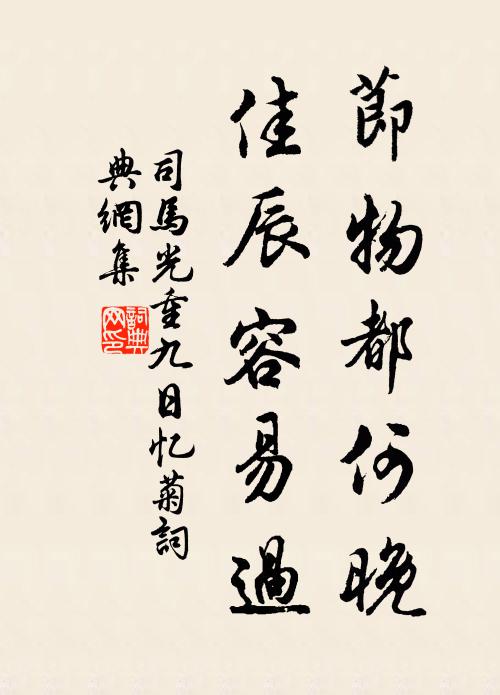 節物都何晚
佳辰容易過
司馬光重九日忆菊詞
典網集
詞典
网印